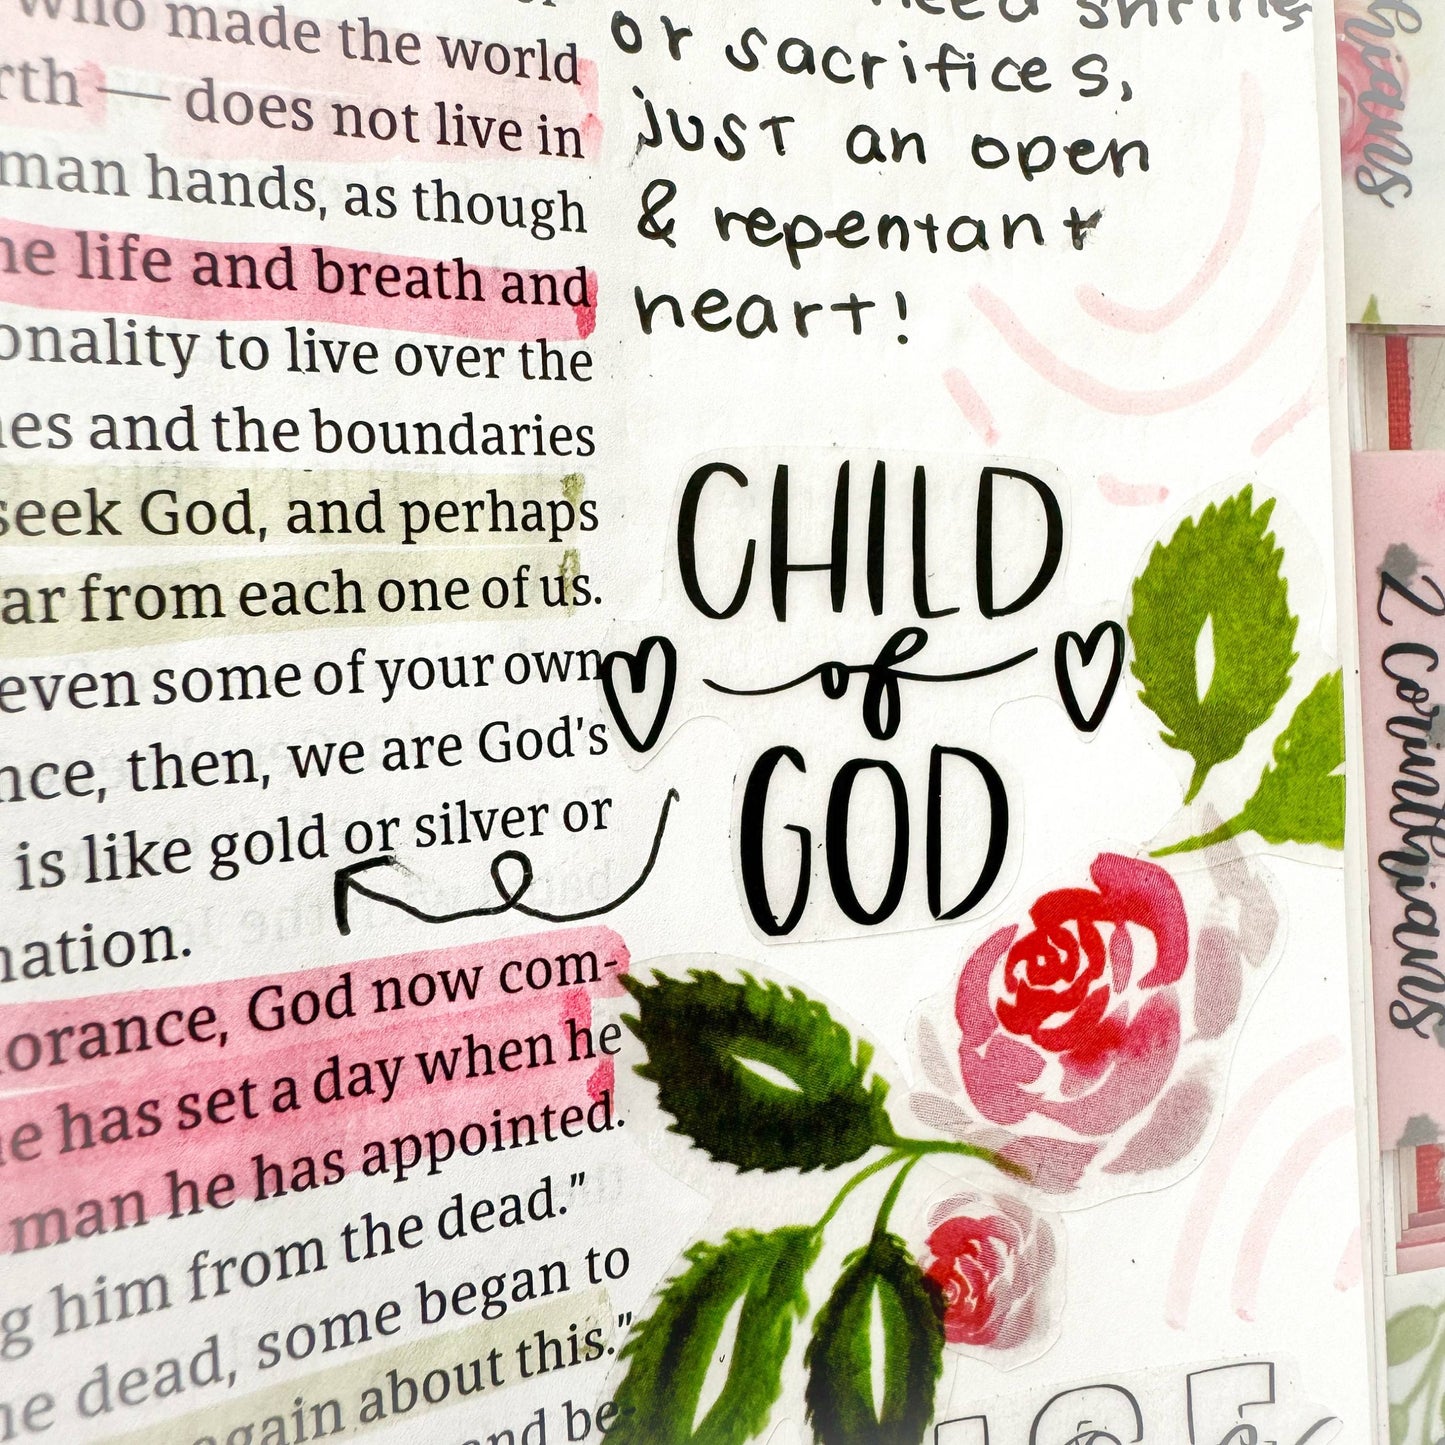 who made the world
— does not live in
hands, as though
life and breath and
to live over the
and the boundaries
seek God, and perhaps
from each one of us.
even some of your own
then, we are God's
is like gold or silver or
God now com-
has set a day when he
man he has appointed.
him from the dead."
dead, some began to
about this."
and be-
shrines
or sacrifices,
just an open
& repentant
heart!
CHILD
of
GOD
2 Corinthians